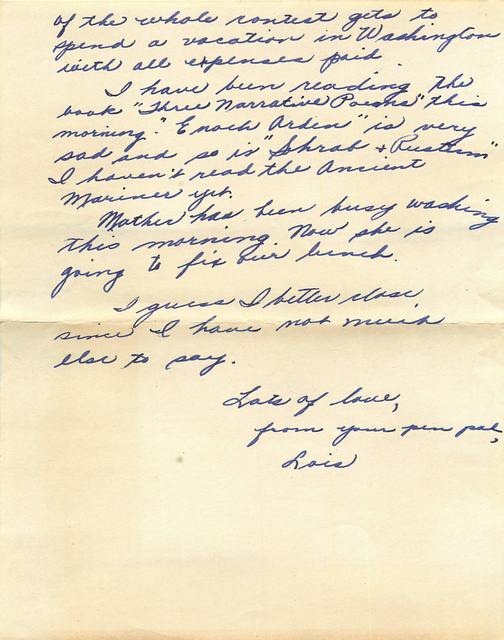 of the whole contest gets to
spend a vacation in Washington
with all expenses paid.
I have been reading the
book "Three Narrative Poems" this
morning. "Enoch Arden" is very
sad and so is "Sohrab + Rustum"
I haven't read the Ancient
Mariner yet.
Mother has been busy washing
this morning. Now she is
going to fix our lunch.
I guess I better close
since I have not much
else to say.
Lots of love,
from your pen pal,
Lois